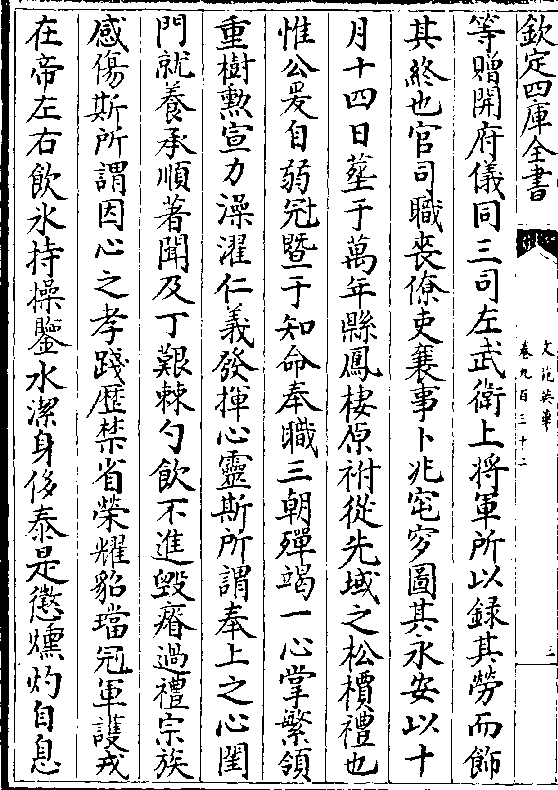 欽定四庫全書
文苑英華
卷九百三十二
三
等贈開府儀同三司左武衛上將軍所以録其勞而飾
其終也官司職喪僚吏襄事卜兆宅穸圖其永安以十
月十四日塟于萬年縣鳳棲原祔從先域之松檟禮也
惟公爰自弱冠暨于知命奉職三朝殫竭一心掌繁領
重樹勲宣力澡濯仁義發揮心靈斯所謂奉上之心閨
門就養承順著聞及丁艱棘勺飲不進毁瘠過禮宗族
感傷斯所謂因心之孝踐歴禁省榮耀貂璫冠軍護戎
在帝左右飲氷持操鑒水潔身侈泰是懲燻灼自息